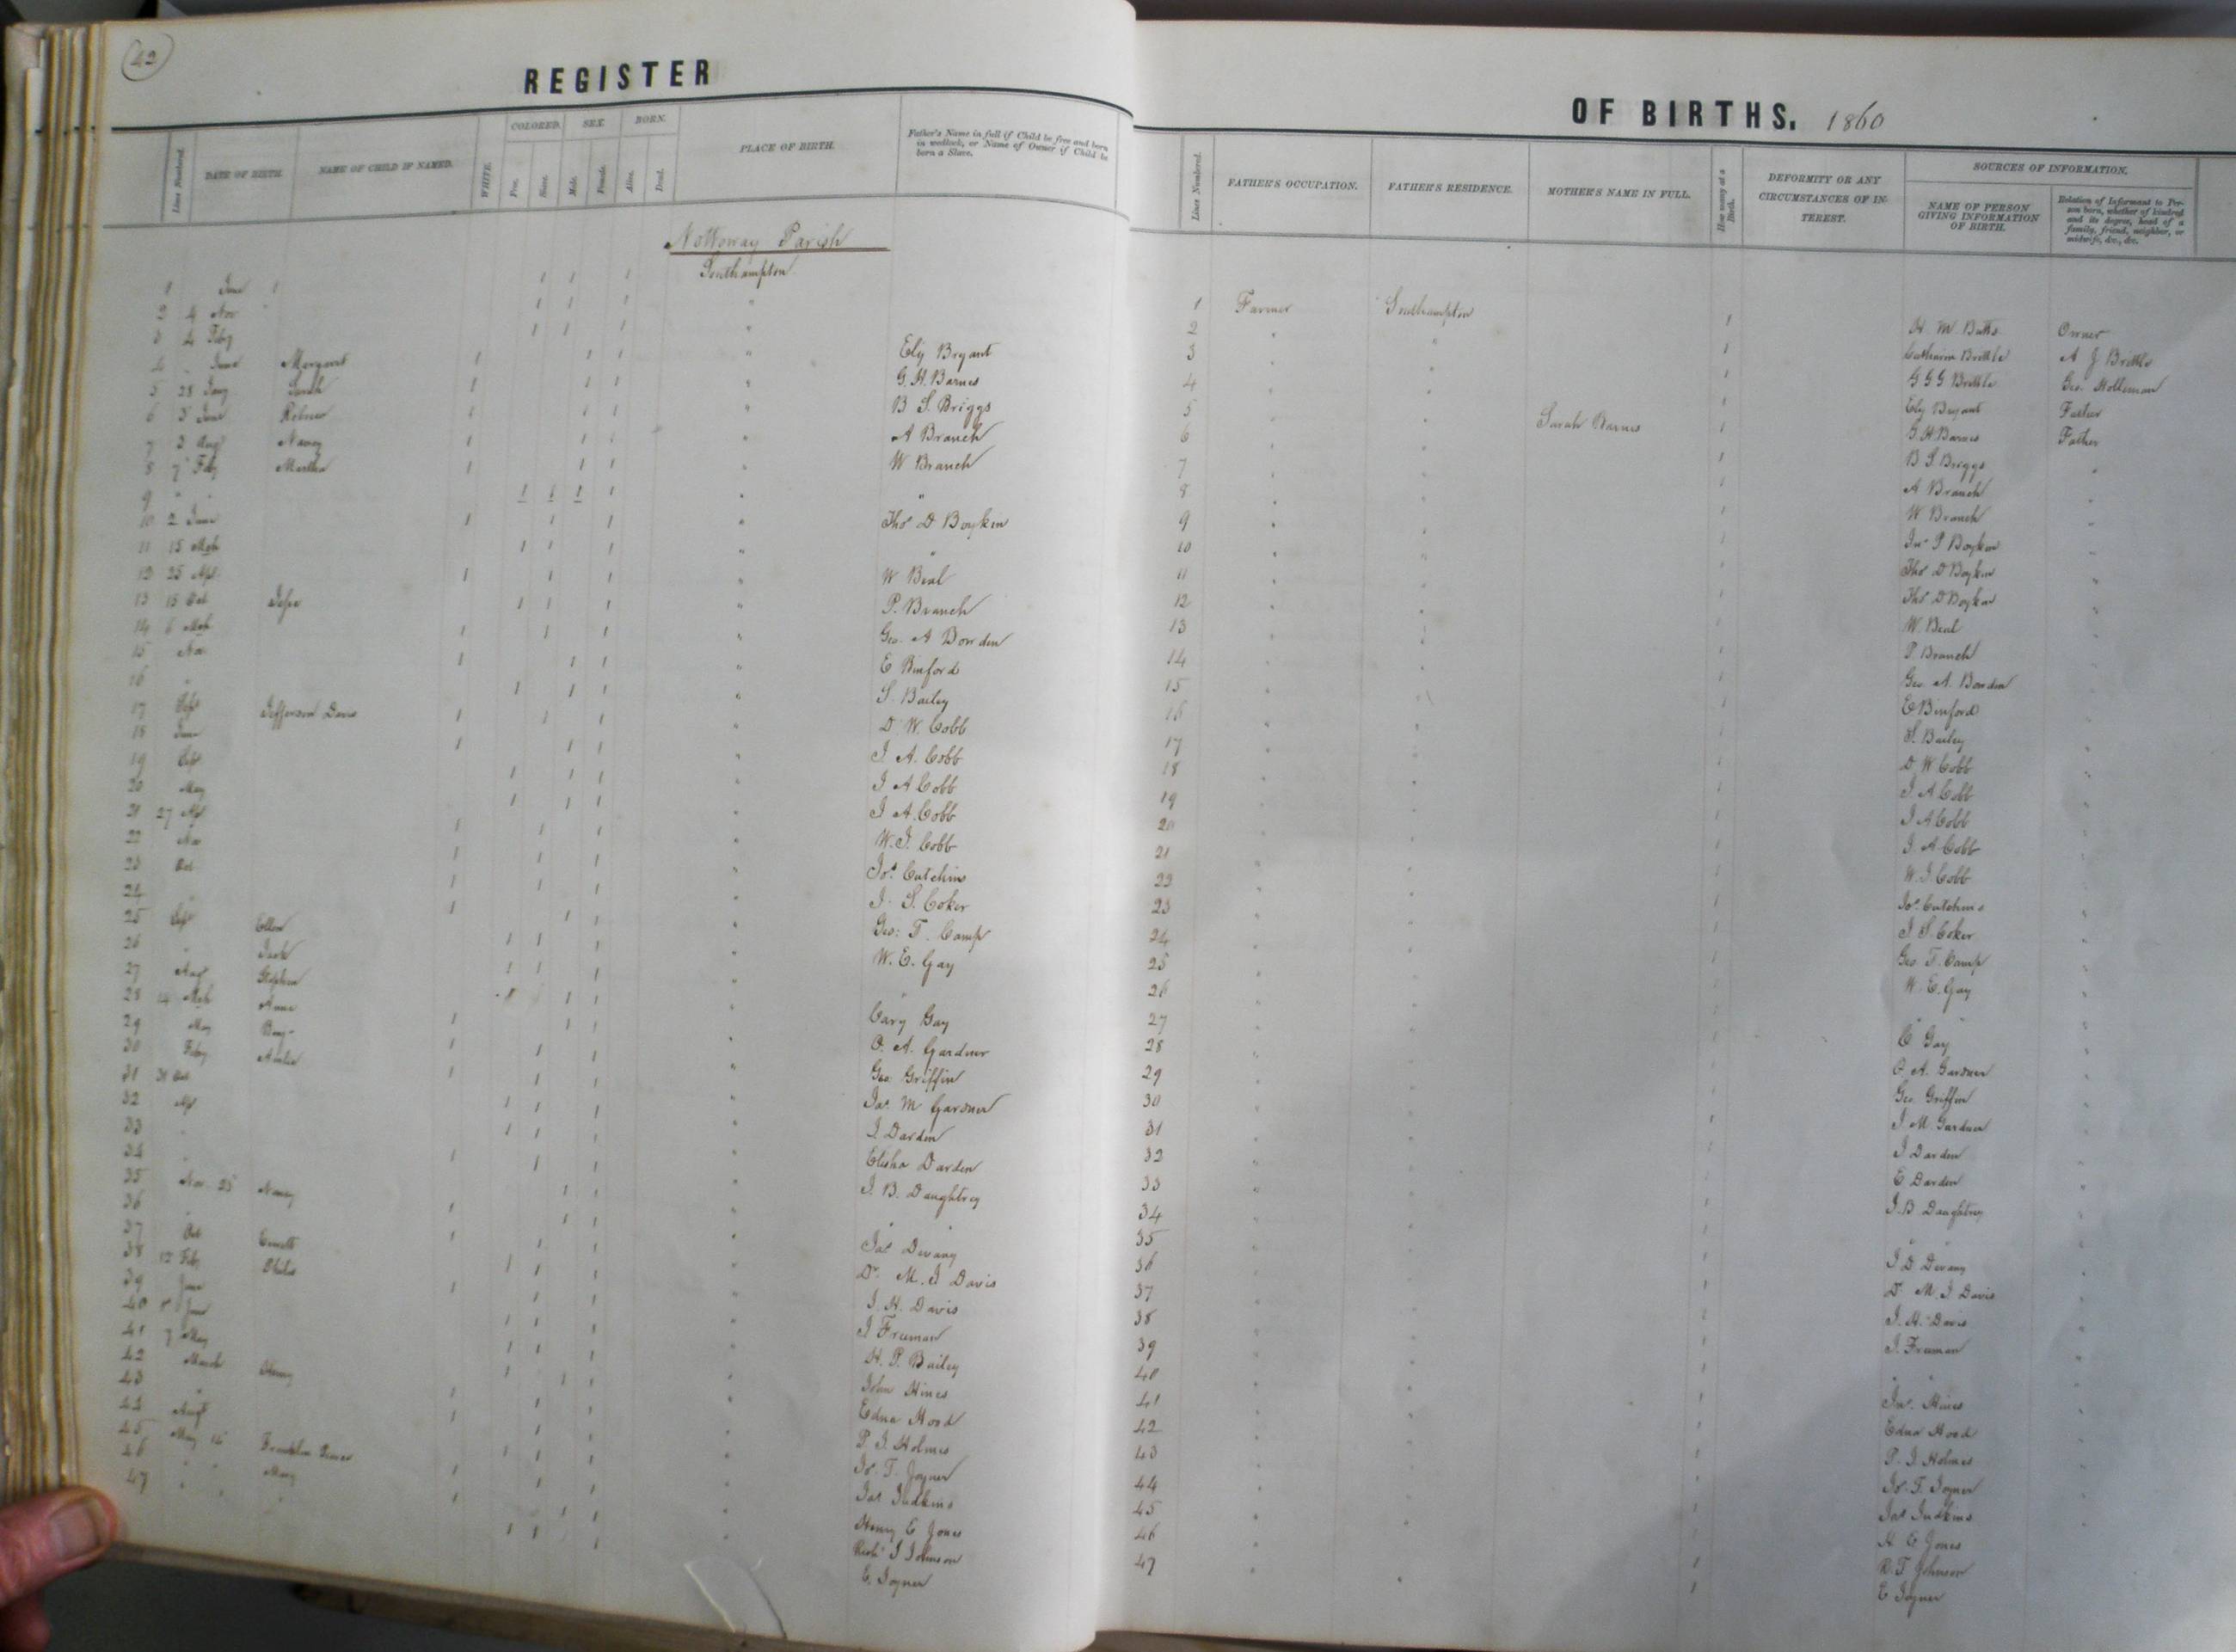 42
REGISTER
Lines Numbered.
DATE OF BIRTH.
NAME OF CHILD IF NAMED.
WHITE.
COLORED.
Free.
Slave.
SEX.
Male.
Female.
BORN.
Alive.
Dead.
PLACE OF BIRTH.
Father's Name in full if Child be free and born
in wedlock, or Name of Owner if Child be
born a Slave.
Nottoway Parish
Southampton
1 June
2 4 Nov
3 4 Feby
4 " June Margaret Ely Bryant
5 28 Jany Sarah G. H. Barnes
6 5 June B S. Briggs
7 3 Aug Nancy A Branch
8 7 Feby Martha W Branch
9 " " "
10 2 June Thos D Boykin
11 15 Mch "
12 25 Apl W Beal
13 15 Oct P. Branch
14 6 Mch Geo. A Bowden
15 Nov E Binford
16 " S. Bailey
17 Sept Jefferson Davis D. W. Cobb
18 June J A. Cobb
19 Sep J A Cobb
20 May J A. Cobb
21 27 Apl W. J. Cobb
22 Nov Jos. Cutchins
23 Oct J. S. Coker
24 " Geo: T. Camp
25 Sept Ellen W. E. Gay
26 " "
27 Aug Stephen Cary Gay
28 14 Mch Anna O. A. Gardner
29 May Geo Griffin
30 Feby Jas. M Gardner
31 31 Oct J Darden
32 Apl Elisha Darden
33 " J. B. Daughtrey
34 " "
35 Nov. 25 Nancy Jas Devany
36 " Dr. M. J Davis
37 Oct J. H. Davis
38 12 Feby J Freeman
39 June H. P. Bailey
40 June John Hines
41 7 May Edna Hood
42 March Henry P. J. Holmes
43 " Jo. T. Joyner
44 Aug Jas Judkins
45 May 16 Franklin Henry E Jones
46 " " Mary J Johnson
47 " " " E. Joyner
OF BIRTHS. 1860
Lines Numbered.
FATHER'S OCCUPATION.
FATHER'S RESIDENCE.
MOTHER'S NAME IN FULL.
How many at a
Birth.
DEFORMITY OR ANY
CIRCUMSTANCES OF IN-
TEREST.
SOURCES OF INFORMATION.
NAME OF PERSON
GIVING INFORMATION
OF BIRTH.
Relation of Informant to Per-
son born, whether of kindred
and its degree, head of a
family, friend, neighbor, or
midwife, &c., &c.
1 Farmer Southampton 1 H. M Butts Owner
2 " " 1 Catharine Brittle A J Brittle
3 " " 1 G G G Brittle Geo. Holleman
4 " " 1 Ely Bryant Father
5 " " Sarah Barnes 1 G. H. Barnes Father
6 " " 1 B S. Briggs "
7 " " 1 A Branch "
8 " " 1 W Branch "
9 " " 1 Jno P Boykin "
10 " " 1 Thos D Boykin "
11 " " 1 Thos D Boykin "
12 " " 1 W. Beal "
13 " " 1 P. Branch "
14 " " 1 Geo. A. Bowden "
15 " " 1 E Binford "
16 " " 1 S. Bailey "
17 " " 1 D W Cobb "
18 " " 1 J. A Cobb "
19 " " 1 J A Cobb "
20 " " 1 J. A Cobb "
21 " " 1 W. J. Cobb "
22 " " 1 Jos. Cutchins "
23 " " 1 J. S Coker "
24 " " 1 Geo T. Camp "
25 " " 1 W. E. Gay "
26 " " 1 " " "
27 " " 1 C Gay "
28 " " 1 O. A. Gardner "
29 " " 1 Geo Griffin "
30 " " 1 J. M. Gardner "
31 " " 1 J Darden "
32 " " 1 E Darden "
33 " " 1 J. B Daughtrey "
34 " " 1 " " "
35 " " 1 J D Devany "
36 " " 1 Dr M. J. Davis "
37 " " 1 J. H. Davis "
38 " " 1 J. Freeman "
39 " " 1 " " "
40 " " 1 Jno. Hines "
41 " " 1 Edna Hood "
42 " " 1 P. J. Holmes "
43 " " 1 Jo. T. Joyner "
44 " " 1 Jas Judkins "
45 " " 1 H E Jones "
46 " " 1 R. T Johnson "
47 " " 1 E Joyner